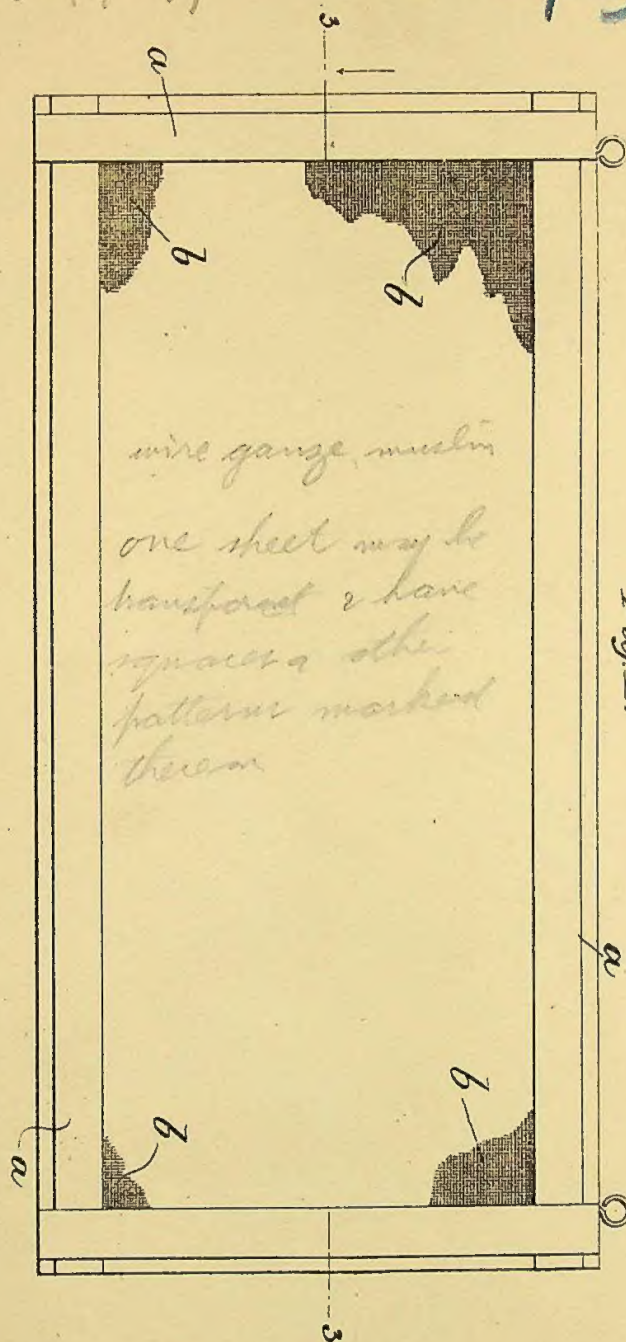 3
a
b
b
wire gauze, muslin
one sheet may be
transparent & have
squares a other
patterns marked
thereon
Fig. 1.
a
b
b
a
3